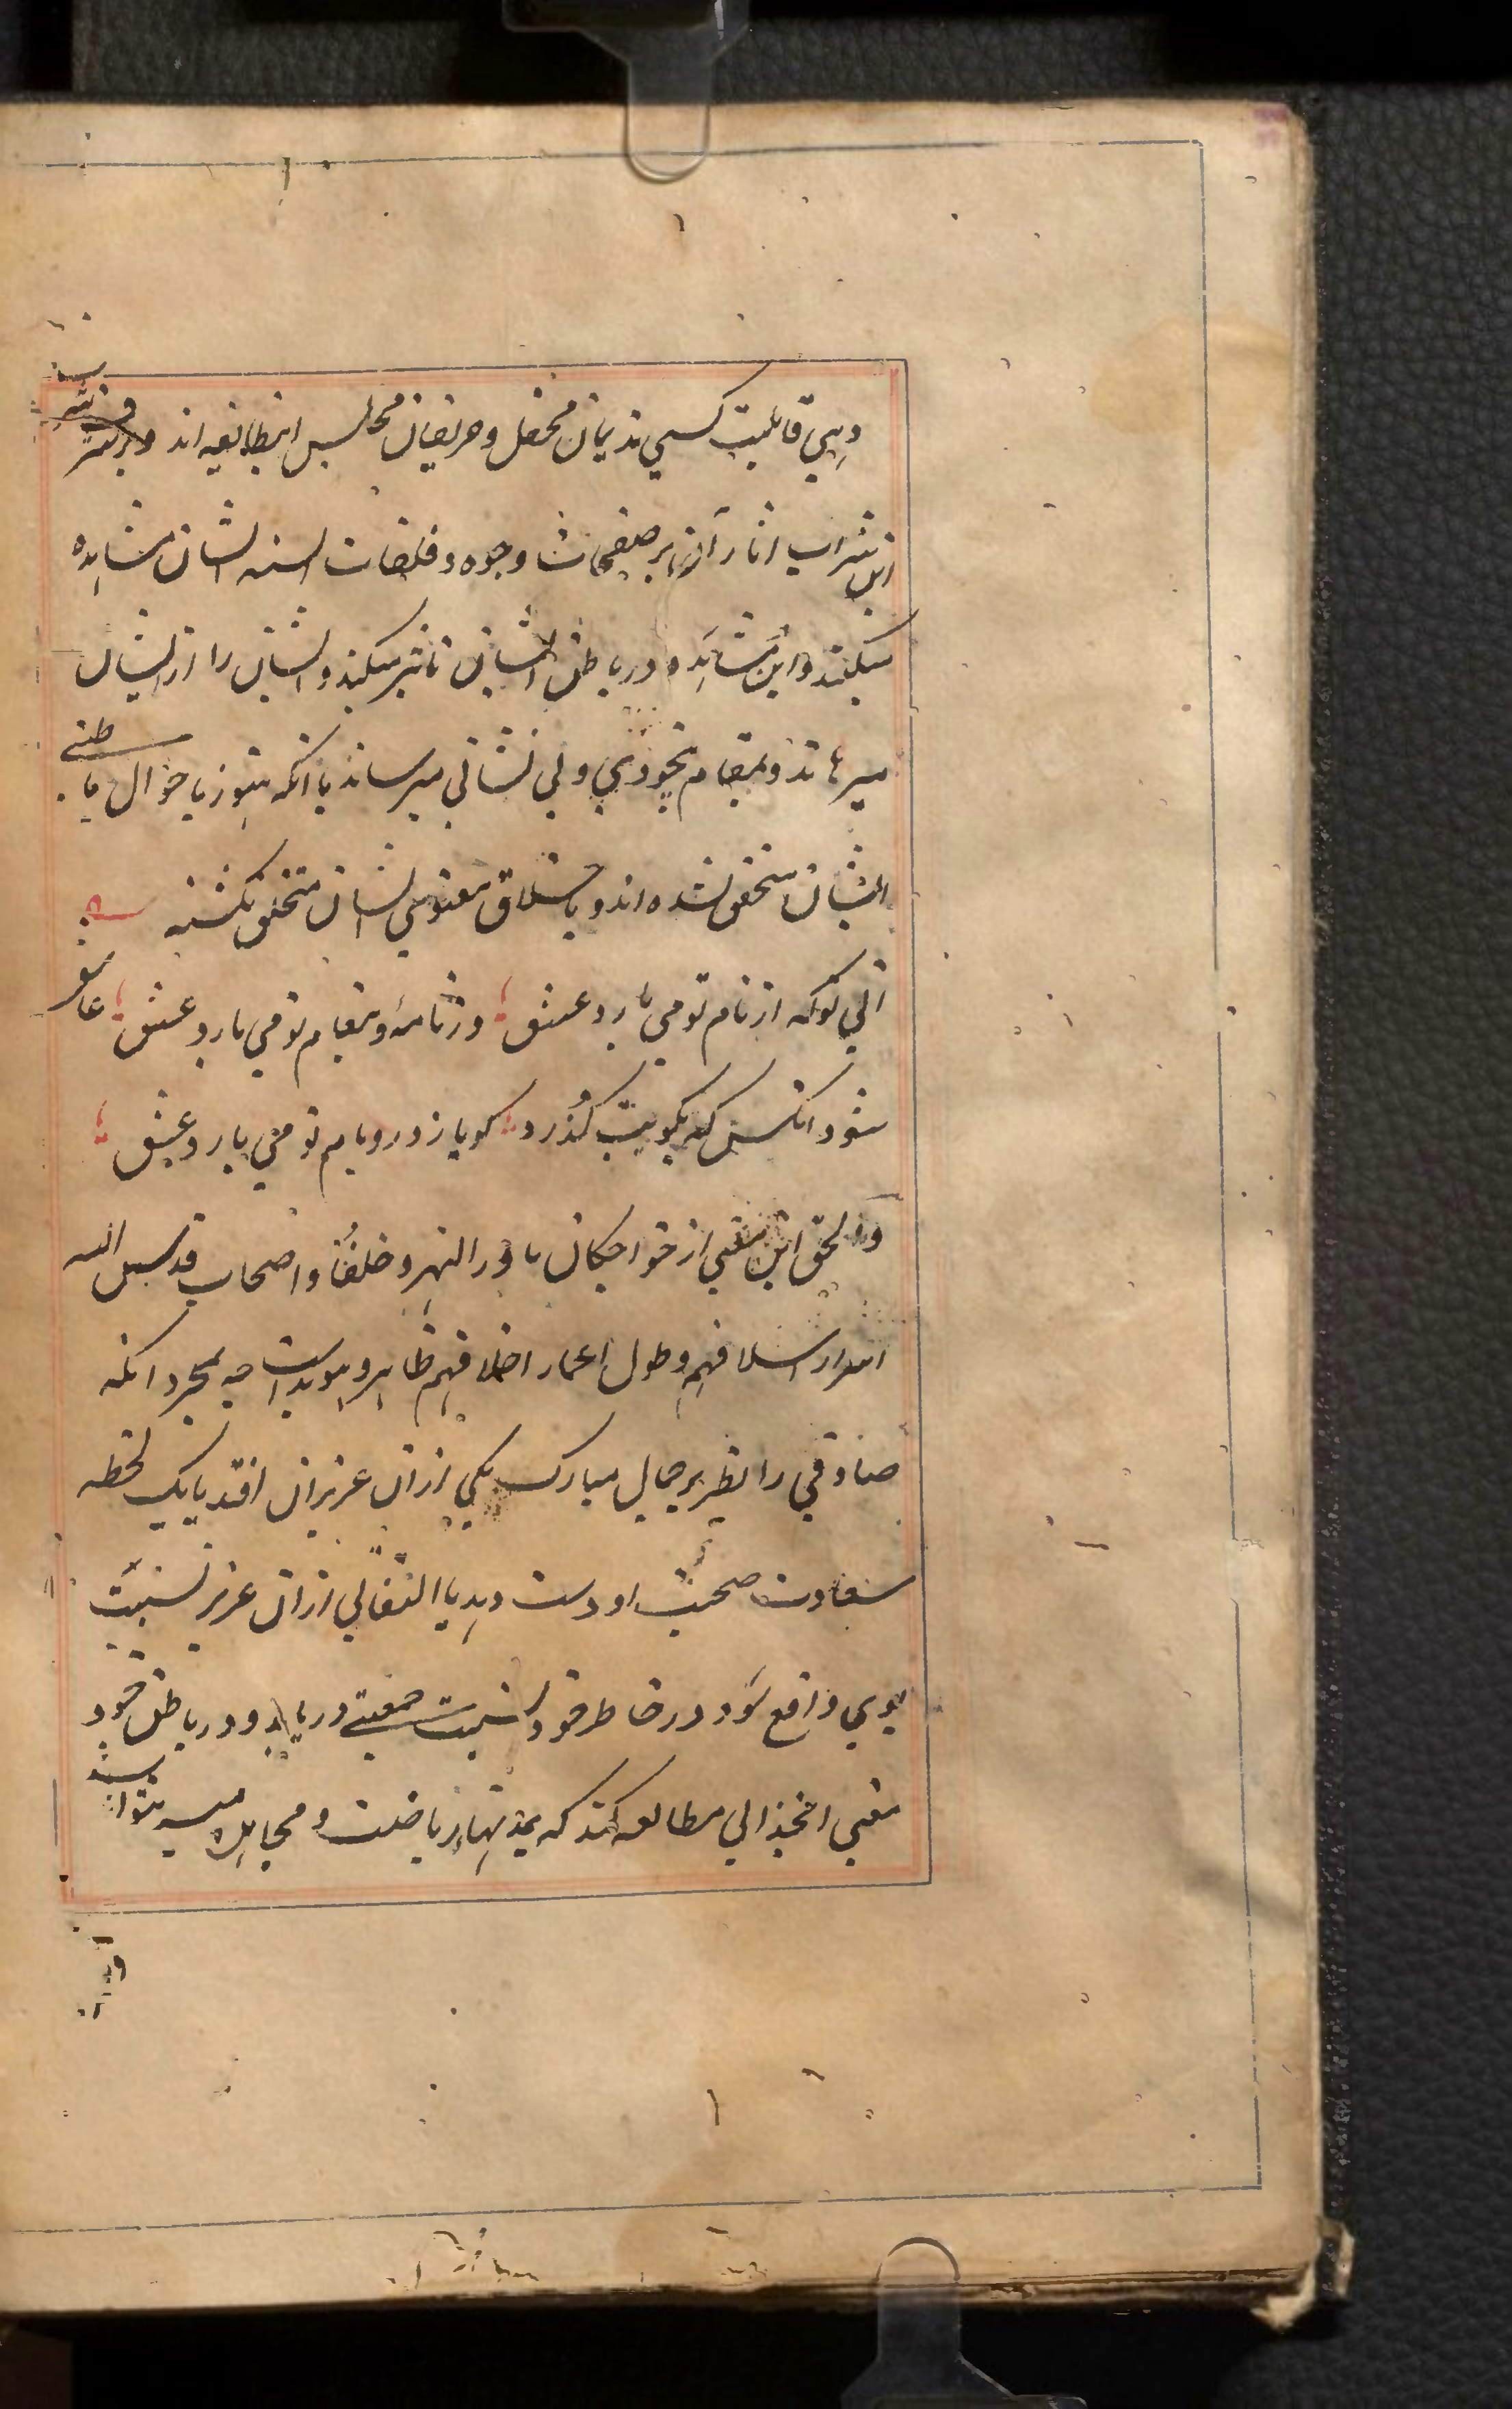 وبي قابليت كسي نديمان محفل و حريفان مجالس اينطايفه اند
اين شراب اثار آنرا بر صفحات وجوه و فلتات السنه ايشان مشاهده
ميكنند و اين مشاهده در باطن ايشان تاثير ميكند و ايشان را از ايشان
ميرهاند و بمقام بيخودي و بي نشاني ميرساند با انكه هنوز باحوال باطني
ايشان متحقق نشده اند و باخلاق معنوي ايشان متخلق نكشته
اني تو كه از نام تو مي بارد عشق وز نامه و پيغام تو مي بارد عشق عاشق
شود انكس كه بكويت كذرد كويا ز در و بام تو مي بارد عشق
والحق اين معني از خواجكان ماورا النهر و خلفا و اصحاب قدس الله
اسرار اسلافهم و طول اعمار اخلافهم ظاهر و هويداست چه بمجرد انكه
صادقي را نظر بر جمال مبارك يكي از ان عزيزان افتد يا يك لحظه
سعادت صحبت او دست دهد يا التفاتي از ان عزيز نسبت
بوي واقع شود در خاطر خود نسبت جمعيتي دريابد و در باطن خود
معني انجذابي مطالعه كند كه بمدتها رياضت و مجاهده ميسر نتواند شد